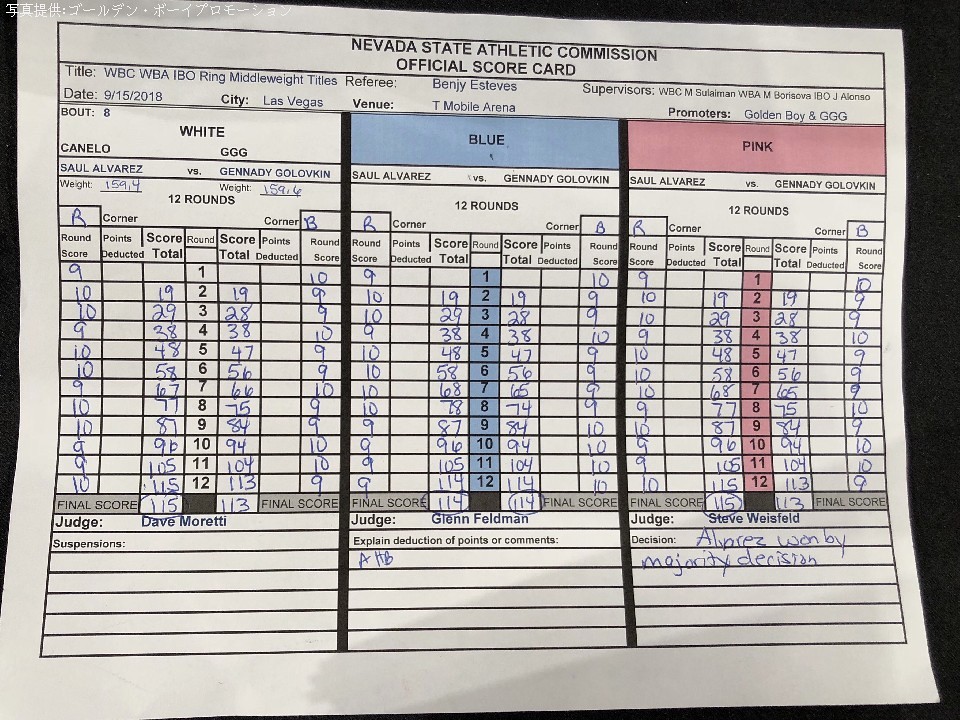 写真提供:ゴールデン・ボーイプロモーション
NEVADA STATE ATHLETIC COMMISSION
OFFICIAL SCORE CARD
Title: WBC WBA IBO Ring Middleweight Titles Referee: Benjy Esteves Supervisors: WBC M Sulaiman WBA M Borisova IBO J Alonso
Date: 9/15/2018 City: Las Vegas Venue: T Mobile Arena Promoters: Golden Boy & GGG
BOUT: 8
WHITE BLUE PINK
CANELO GGG
SAUL ALVAREZ vs. GENNADY GOLOVKIN SAUL ALVAREZ vs. GENNADY GOLOVKIN SAUL ALVAREZ vs. GENNADY GOLOVKIN
Weight: 159.4 Weight: 159.6
12 ROUNDS 12 ROUNDS 12 ROUNDS
R Corner Corner B R Corner Corner B R Corner Corner B
Round Points Score Round Score Points Round Round Points Score Round Score Points Round Round Points Score Round Score Points Round
Score Deducted Total Total Deducted Score Score Deducted Total Total Deducted Score Score Deducted Total Total Deducted Score
9 1 10 9 1 10 9 1 10
10 19 2 19 9 10 19 2 19 9 10 19 2 19 9
10 29 3 28 9 10 29 3 28 9 10 29 3 28 9
9 38 4 38 10 9 38 4 38 10 9 38 4 38 10
10 48 5 47 9 10 48 5 47 9 10 48 5 47 9
10 58 6 56 9 10 58 6 56 9 10 58 6 56 9
9 67 7 66 10 10 68 7 65 9 10 68 7 65 9
10 77 8 75 9 10 78 8 74 9 9 77 8 75 10
10 87 9 84 9 9 87 9 84 10 10 87 9 84 9
9 96 10 94 10 9 96 10 94 10 9 96 10 94 10
9 105 11 104 10 9 105 11 104 10 9 105 11 104 10
10 115 12 113 9 9 114 12 114 10 10 115 12 113 9
FINAL SCORE 115 113 FINAL SCORE FINAL SCORE 114 114 FINAL SCORE FINAL SCORE 115 113 FINAL SCORE
Judge: Dave Moretti Judge: Glenn Feldman Judge: Steve Weisfeld
Suspensions: Explain deduction of points or comments: Decision: Alvarez won by
majority decision